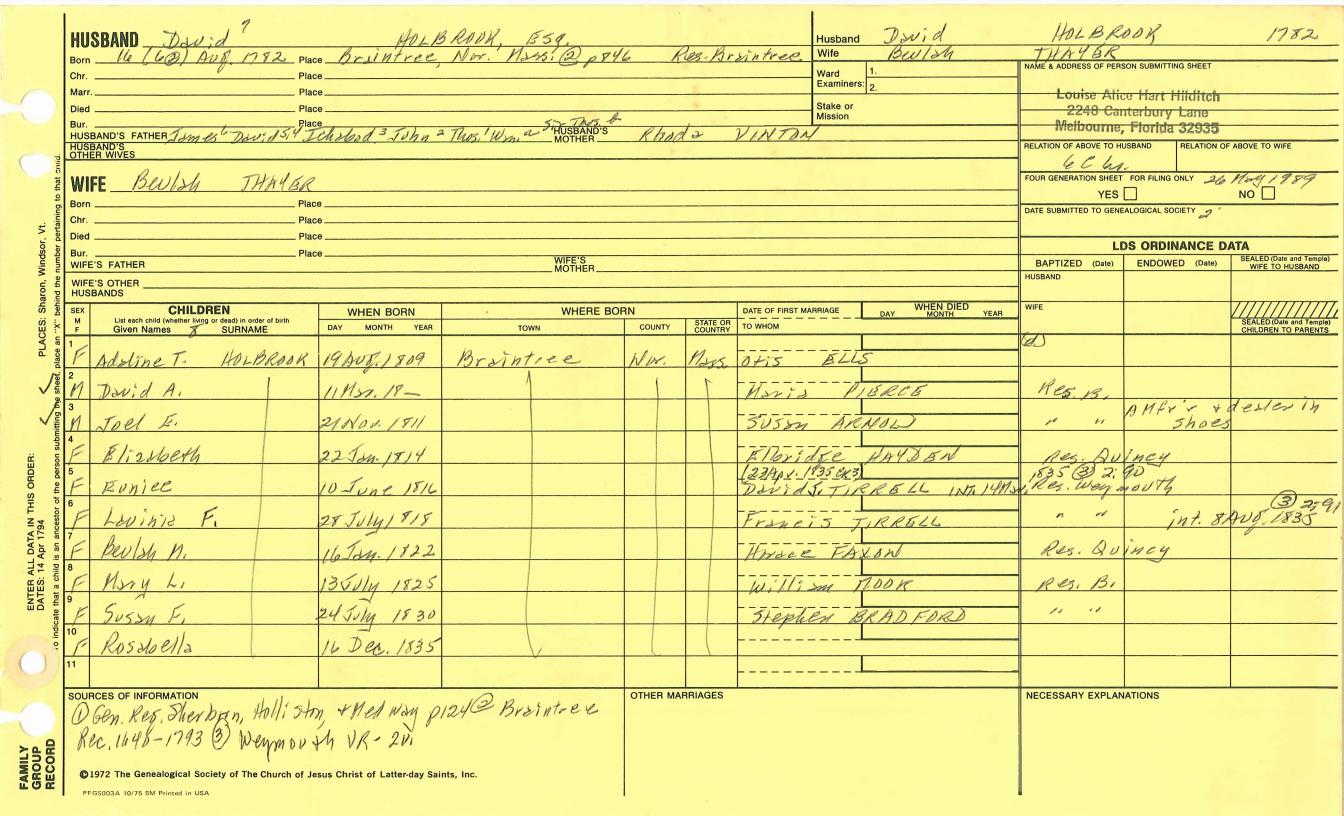 HUSBAND David 7 HOLBROOK, ESQ.
Born 16 (6②) Aug. 1782 Place Braintree, Nor. Mass. ② p846 Res-Braintree
Chr. Place
Marr. Place
Died Place
Bur. Place
HUSBAND'S FATHER James 6 David 5,4 Ichabod 3 John 2 Thos. 1 Wm. HUSBAND'S MOTHER Rhoda VINTON
HUSBAND'S OTHER WIVES
Husband David HOLBROOK 1782
Wife Beulah THAYER
Ward Examiners: 1.
2.
Stake or Mission
NAME & ADDRESS OF PERSON SUBMITTING SHEET
Louise Alice Hart Hilditch
2248 Canterbury Lane
Melbourne, Florida 32935
RELATION OF ABOVE TO HUSBAND RELATION OF ABOVE TO WIFE
6 C
FOUR GENERATION SHEET FOR FILING ONLY 26 May 1989
YES NO
DATE SUBMITTED TO GENEALOGICAL SOCIETY
WIFE Beulah THAYER
Born Place
Chr. Place
Died Place
Bur. Place
WIFE'S FATHER WIFE'S MOTHER
WIFE'S OTHER HUSBANDS
LDS ORDINANCE DATA
BAPTIZED (Date) ENDOWED (Date) SEALED (Date and Temple) WIFE TO HUSBAND
HUSBAND
WIFE
SEALED (Date and Temple) CHILDREN TO PARENTS
SEX M F
CHILDREN
List each child (whether living or dead) in order of birth
Given Names SURNAME
WHEN BORN
DAY MONTH YEAR
WHERE BORN
TOWN COUNTY STATE OR COUNTRY
DATE OF FIRST MARRIAGE
TO WHOM
WHEN DIED
DAY MONTH YEAR
1 F Adaline T. HOLBROOK 19 AUG. 1809 Braintree Nor. Mass. Otis ELLS
2 M David A. 11 Mar. 18— Maria PIERCE Res. B.
3 M Joel E. 21 Nov. 1811 SUSAN ARNOLD " " A Mfr'r + dealer in shoes
4 F Elizabeth 22 Jan. 1814 Elbridge HAYDEN Res. Quincy
5 F Eunice 10 June 1816 David J. TIRRELL INT. 14 Mar. 1835 ③ 2:90 Res. Weymouth
6 F Lavinia F. 28 July 1818 Francis TIRRELL " " int. 8 AUG. 1835 ③ 2:91
7 F Beulah M. 16 Jan. 1822 Horace FAXON Res. Quincy
8 F Mary L. 13 July 1825 William MOOR Res. B.
9 F Susan F. 24 July 1830 Stephen BRADFORD " "
10 F Rosabella 16 Dec. 1835
11
SOURCES OF INFORMATION
① Gen. Reg. Sherborn, Holliston, + Medway p124 ② Braintree
Rec. 1640-1793 ③ Weymouth VR-
OTHER MARRIAGES
NECESSARY EXPLANATIONS
©1972 The Genealogical Society of The Church of Jesus Christ of Latter-day Saints, Inc.
PFGS003A 10/75 5M Printed in USA
FAMILY GROUP RECORD
ENTER ALL DATA IN THIS ORDER:
DATES: 14 Apr 1794
PLACES: Sharon, Windsor, Vt.
To indicate that a child is an ancestor of the person submitting the sheet, place an "X" behind the number pertaining to that child.